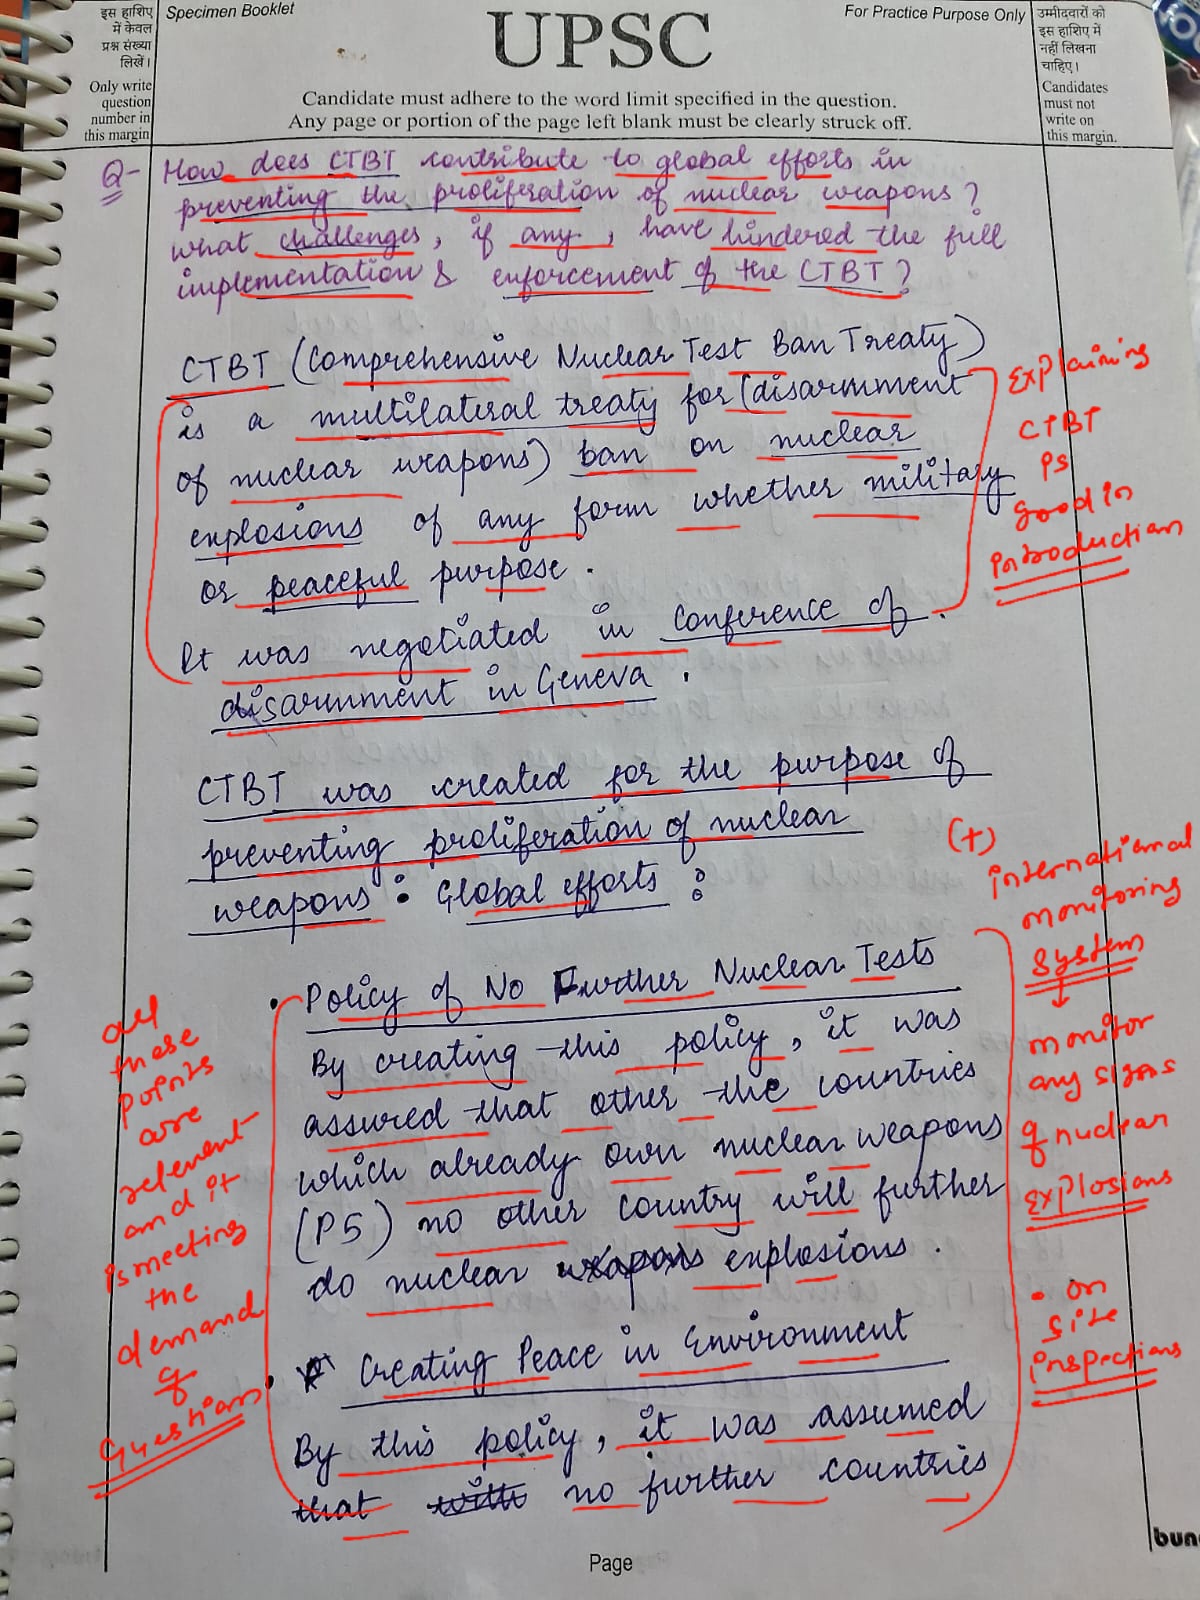 इस हाशिए
में केवल
प्रश्न संख्या
लिखें।
Only write
question
number in
this margin
Specimen Booklet
UPSC
For Practice Purpose Only
Candidate must adhere to the word limit specified in the question.
Any page or portion of the page left blank must be clearly struck off.
उम्मीदवारों को
इस हाशिए में
नहीं लिखना
चाहिए।
Candidates
must not
write on
this margin.
Q- How does CTBT contribute to global efforts in
preventing the proliferation of nuclear weapons?
what challenges, if any, have hindered the full
implementation & enforcement of the CTBT?
CTBT (Comprehensive Nuclear Test Ban Treaty)
is a multilateral treaty for (disarmment
of nuclear weapons) ban on nuclear
explosions of any form whether military
or peaceful purpose.
It was negotiated in Conference of
disarmment in Geneva.
Explaining
CTBT
is
good in
introduction
CTBT was created for the purpose of
preventing proliferation of nuclear
weapons : Global efforts :
• Policy of No Further Nuclear Tests
By creating this policy, it was
assured that other the countries
which already own nuclear weapons
(P5) no other country will further
do nuclear weapons explosions.
• Creating Peace in Environment
By this policy, it was assumed
that with no further countries
all
these
points
are
relevent
and it
is meeting
the
demand
of
Questions
(+)
international
monitoring
system
↓
monitor
any signs
of nuclear
explosions
• on
site
inspections
Page